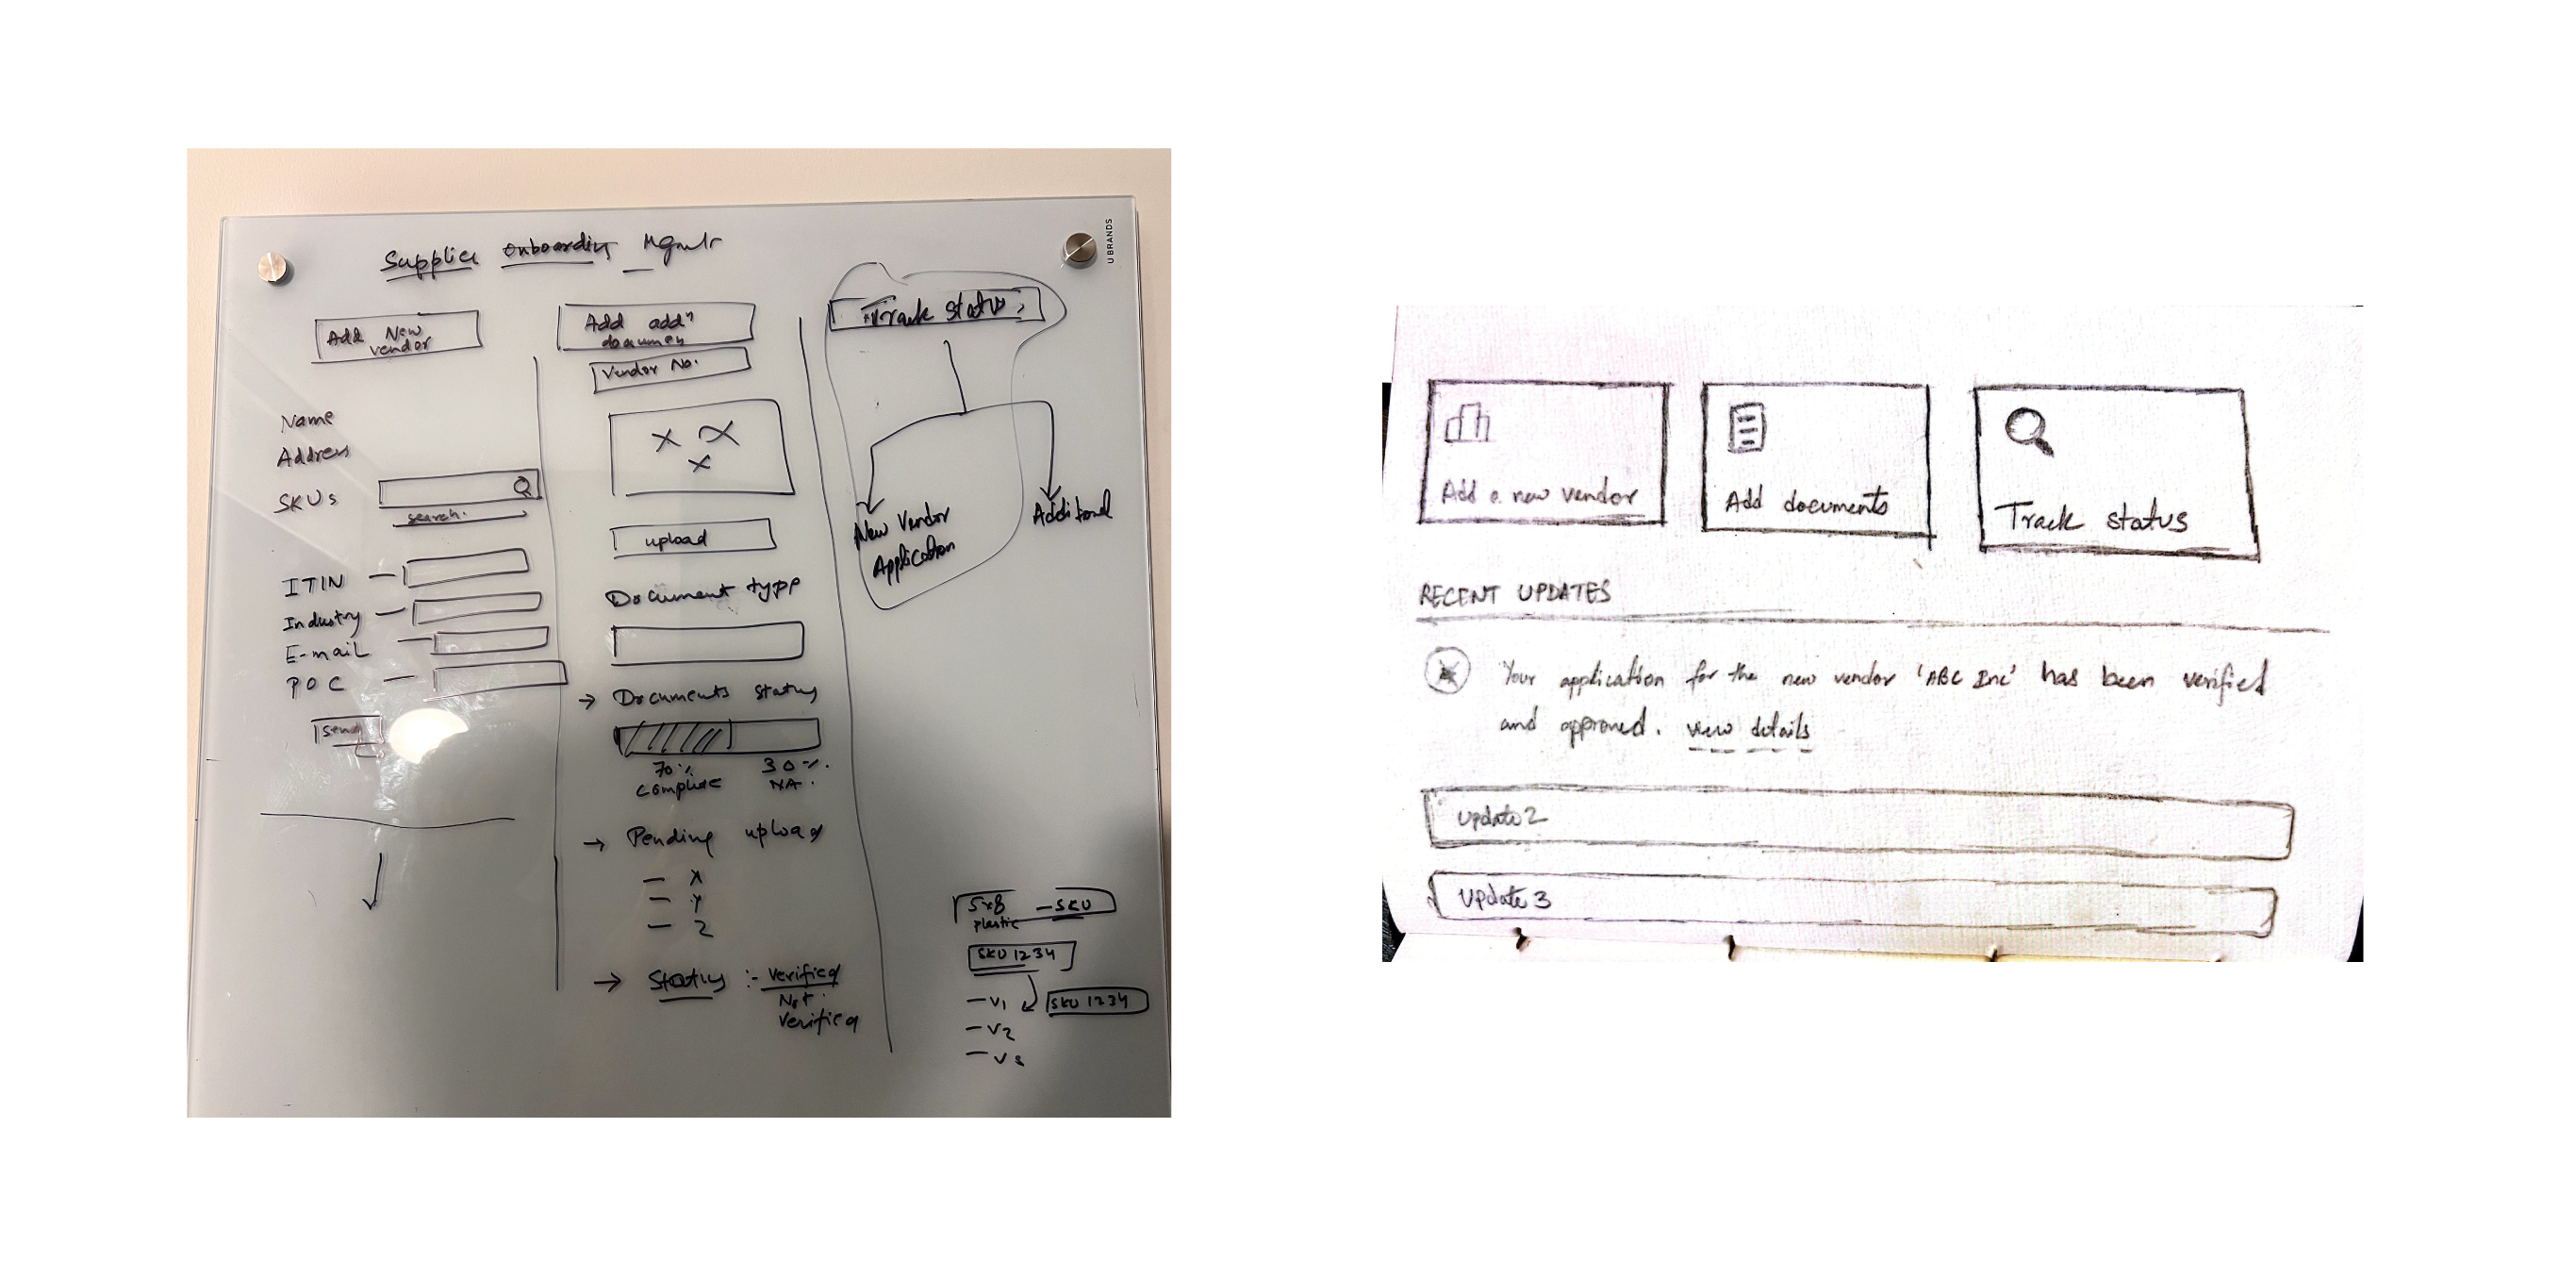 Supplier Onboarding Mgmt
U BRANDS
Add New
vendor
Name
Address
SKUs
search.
ITIN
Industry
E-mail
POC
Send
Add addn
documen
Vendor No.
X X
X
upload
Document type
→ Documents status
70% 30%.
complete NA.
→ Pending upload
— X
— Y
— Z
→ Status :- Verified
Not
Verified
Track status
New Vendor
Application
Additional
5x8 — SKU
plastic
SKU 1234
SKU 1234
— V1
— V2
— V3
Add a new vendor
Add documents
Track status
RECENT UPDATES
Your application for the new vendor 'ABC Inc' has been verified
and approved. view details
Update 2
Update 3